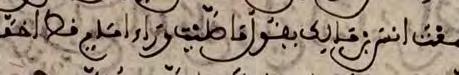 سمعت انس بن مالك يقول ما صليت وراء امام قط اخف